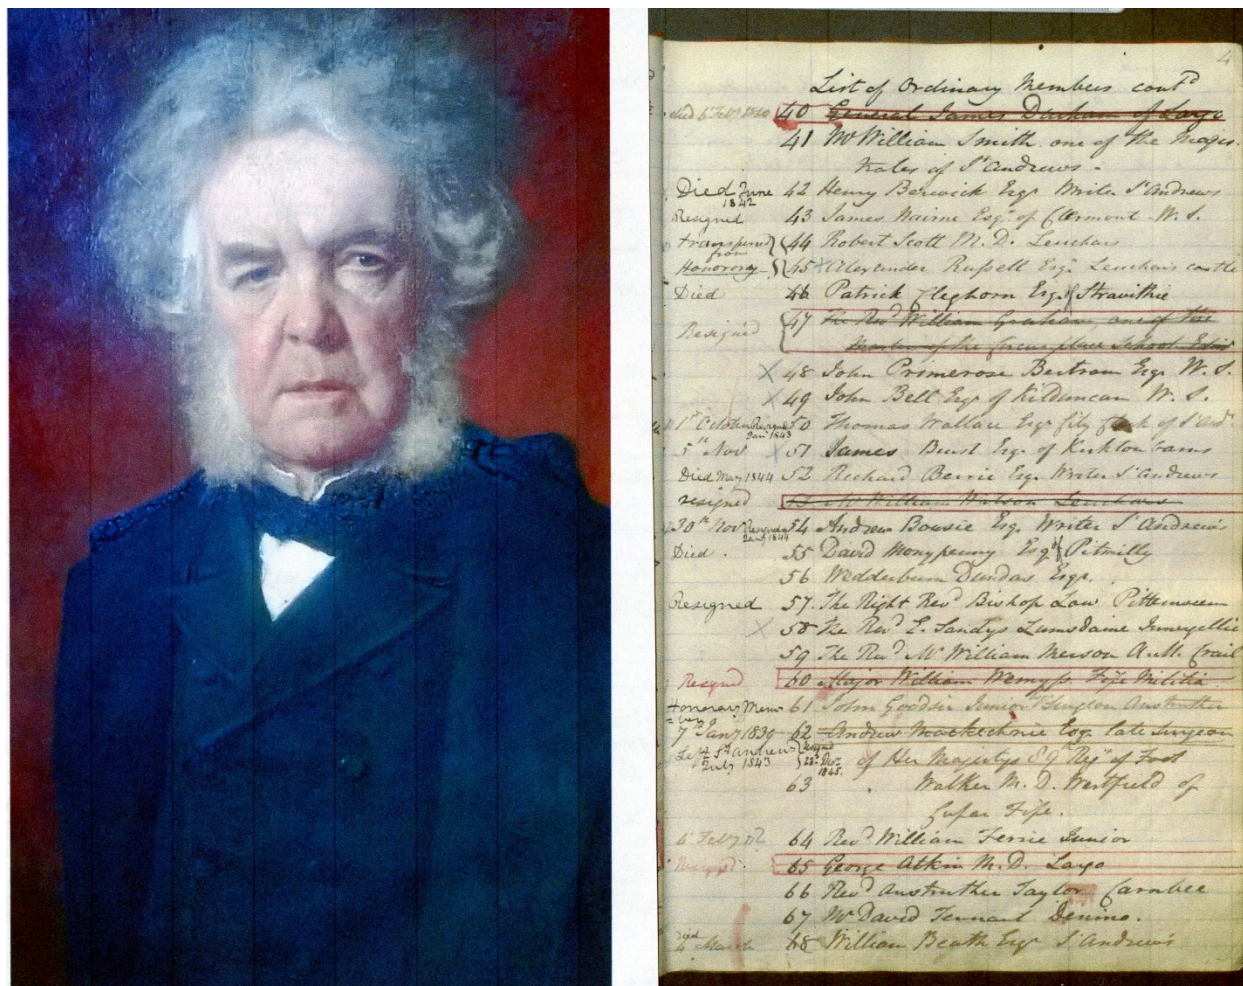 4
List of Ordinary Members contd
died 6 Feby 1840 40 General James Durham of Largo
41 Mr William Smith one of the Magis-
trates of St Andrews -
Died June 1842 42 Henry Berwick Esqr Writer St Andrews
Resigned 43 James Nairne Esqr of Claremont W. S.
transferred from 44 Robert Scott M. D. Leuchars
Honorary 45 x Alexander Russell Esqr Leuchars castle
Died 46 Patrick Cleghorn Esqr of Stravithie
Resigned 47 The Revd William Graham, one of the
Circus place School Edinr
X 48 John Primerose Bertram Esqr W. S.
X 49 John Bell Esqr of Kilduncan W. S.
1st October Resigned Jany 1843 50 Thomas Wallace Esqr City Clerk of St Ands
5th Nov X 51 James Bent Esqr of Kirkton barns
Died May 1844 52 Richard Berrie Esqr Writer St Andrews
resigned 53 Mr William Watson Leuchars
30th Nov Resigned Jany 1844 54 Andrew Bowsie Esqr Writer St Andrews
Died . 55 David Monypenny Esqr of Pitmilly
56 Wedderburn Dundas Esqr.
Resigned 57. The Right Revd Bishop Low Pittenweem
X 58 The Revd E. Sandys Lumsdaine Innergellie
59 The Revd Mr William Merson A.M. Crail
Resigned 60 Major William Wemyss Fife Militia
Honorary Member 61 John Goodsir Junior Surgeon Anstruther
7 Jany 1839 62 Andrew Mackechnie Esqr late surgeon
Left St Andrews July 1843 of Her Majestys Regt of Foot
63 . Walker M. D. Westfield of
Cupar Fife.
4 Feby 64 Revd William Ferrie Junior
Resigned 65 George Atkin M. D. Largo
66 Revd Anstruther Taylor Carnbee
67 Mr David Tennant Denino.
died March 68 William Beath Esqr St Andrews